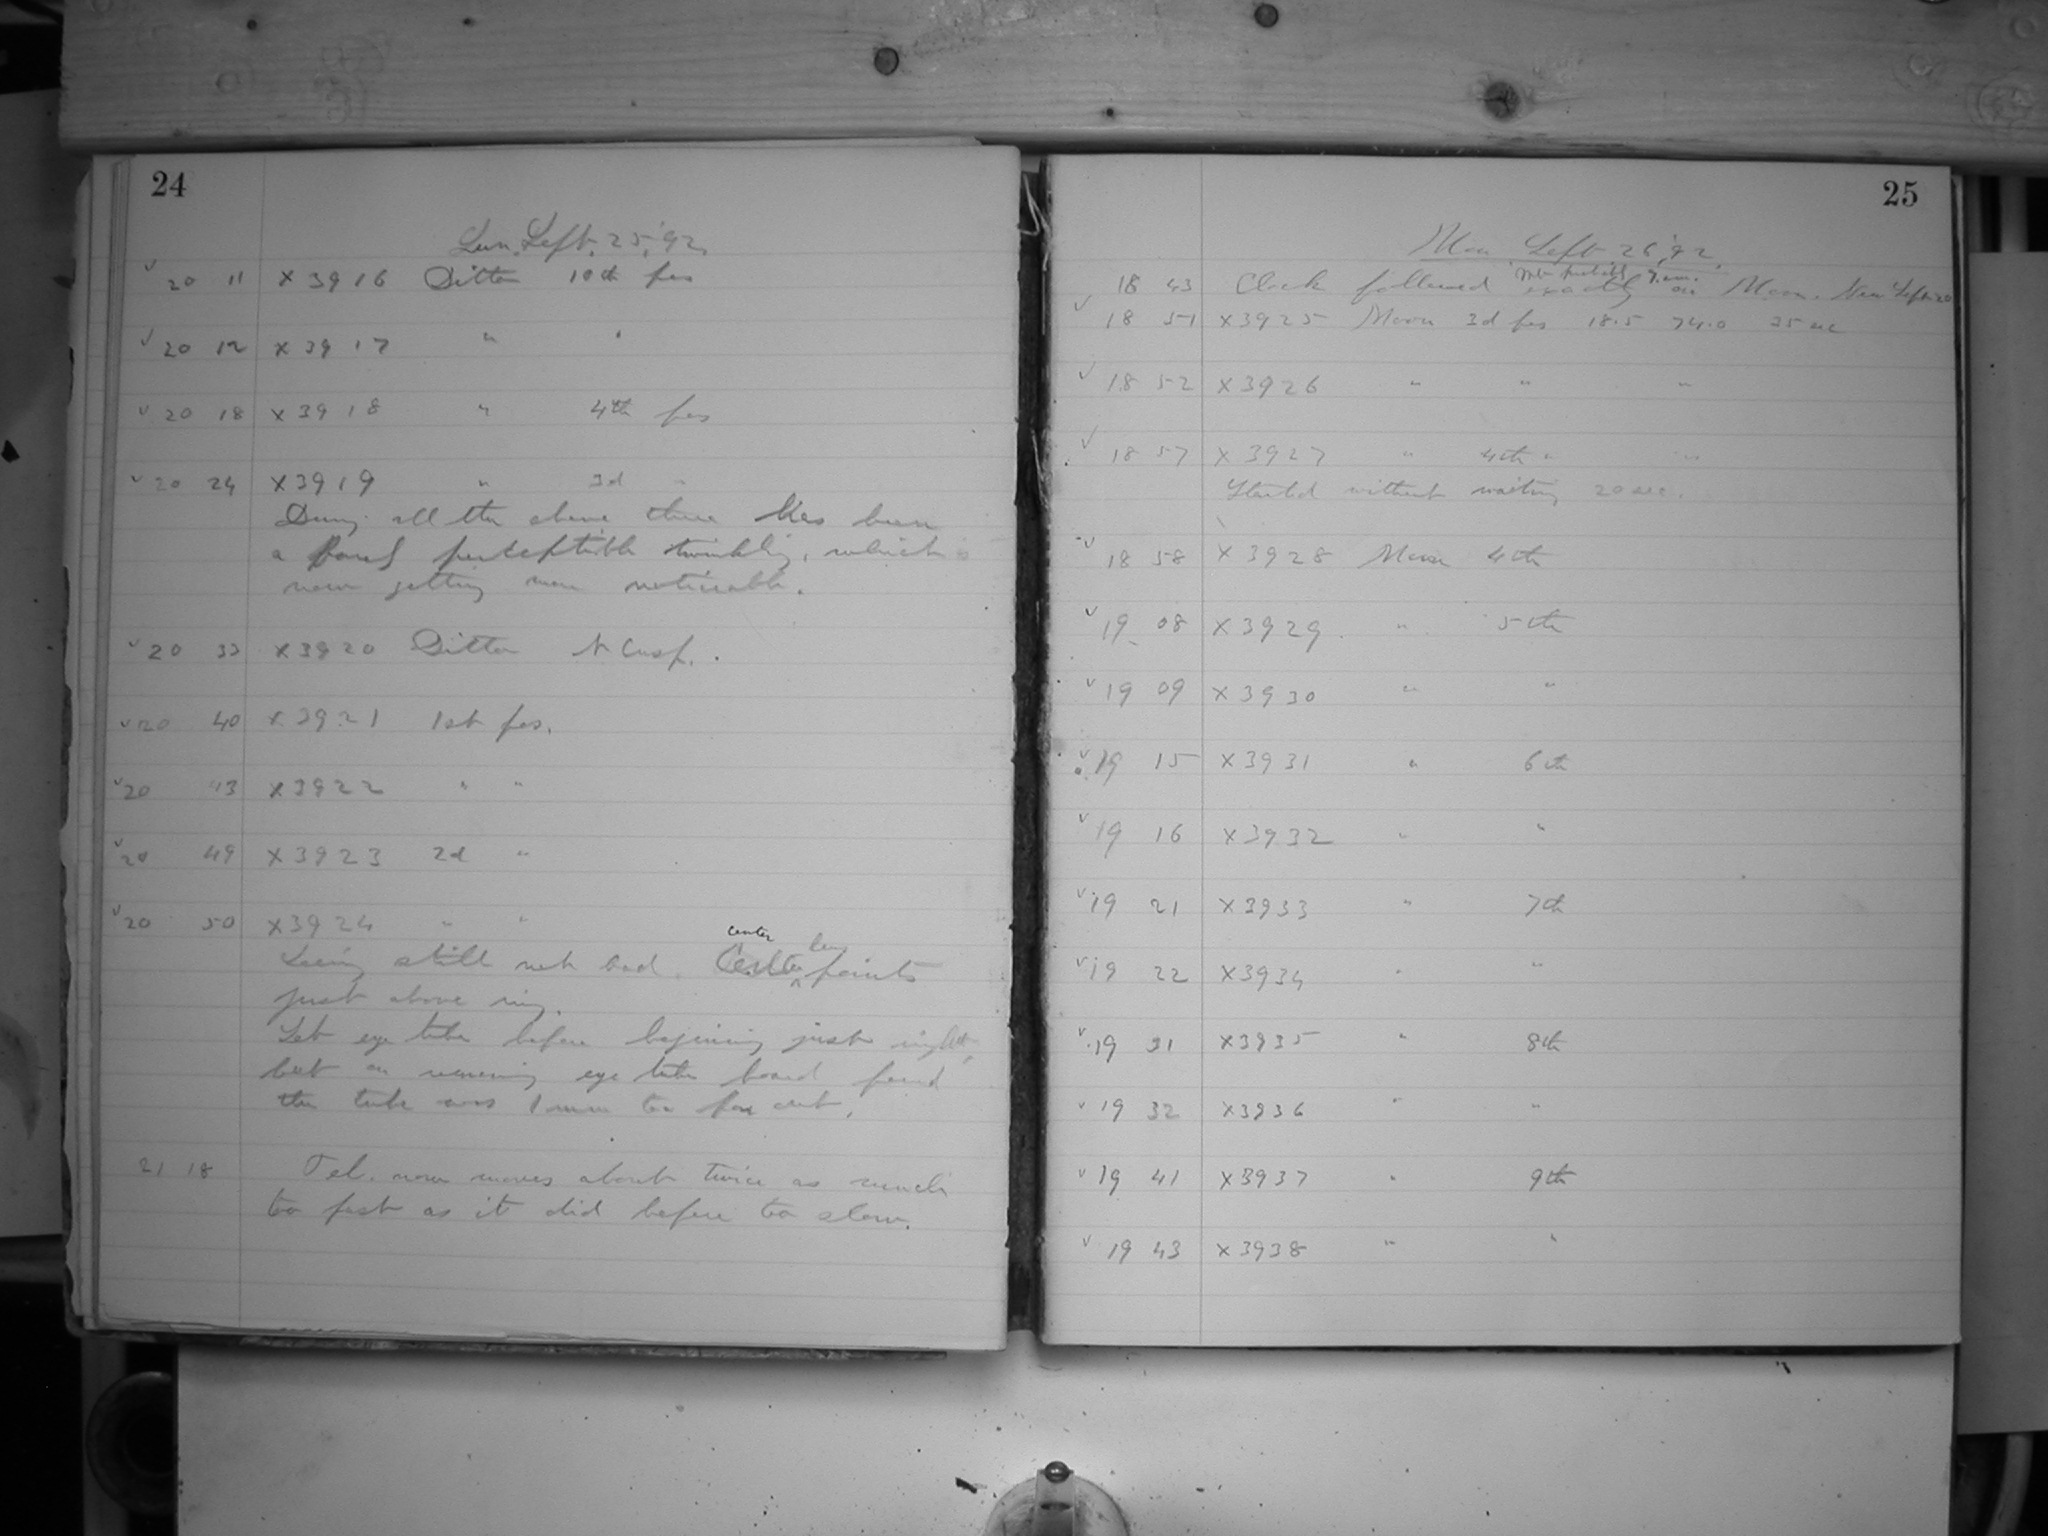 24
Sun. Sept. 25, '92.
v 20 11 x 3916 Ditto 10th pos
v 20 12 x 3917 " "
v 20 18 x 3918 " 4th pos
v 20 24 x 3919 " 3d "
During all the above there has been
a perceptible twinkling, which is
now getting more noticeable.
v 20 33 x 3920 Ditto N Cusp.
v 20 40 x 3921 1st pos.
v 20 43 x 3922 " "
v 20 49 x 3923 2d "
v 20 50 x 3924 " "
center
Seeing still not bad. points
just above ring.
Set eye tube before beginning just right,
but on removing eye tube board found
the tube was 1 mm too far out.
21 18 Tel. now moves about twice as much
too fast as it did before too slow.
25
Mon. Sept. 26, '92.
18 43 Clock followed exactly on Moon. New Sept 20
v 18 51 x 3925 Moon 3d pos 18.5 74.0 25 sec
v 18 52 x 3926 " " "
v 18 57 x 3927 " 4th " "
Started without waiting 20 sec.
v 18 58 x 3928 Moon 4th
v 19 08 x 3929 " 5th
v 19 09 x 3930 " "
v 19 15 x 3931 " 6th
v 19 16 x 3932 " "
v 19 21 x 3933 " 7th
v 19 22 x 3934 " "
v 19 31 x 3935 " 8th
v 19 32 x 3936 " "
v 19 41 x 3937 " 9th
v 19 43 x 3938 " "